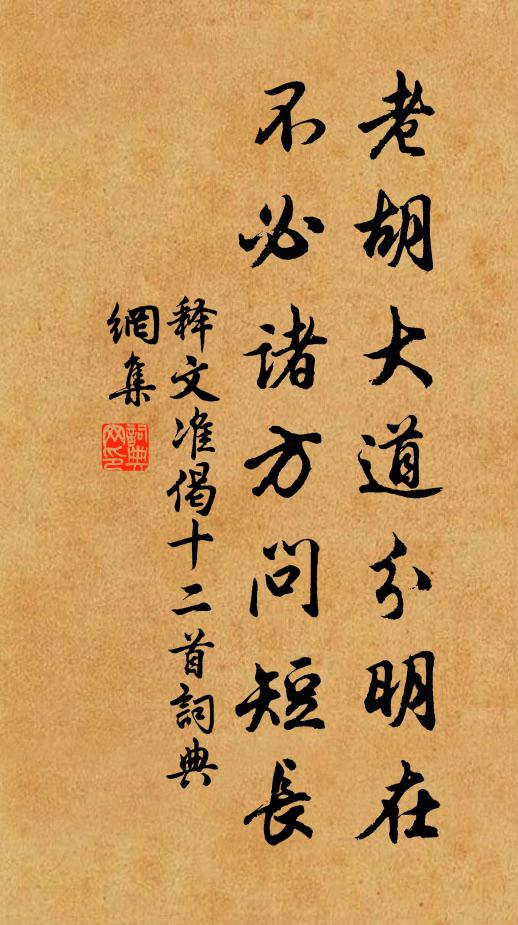 老胡大道分明在
不必诸方問短長
释文准偈十二首詞典
網集
詞典
网印